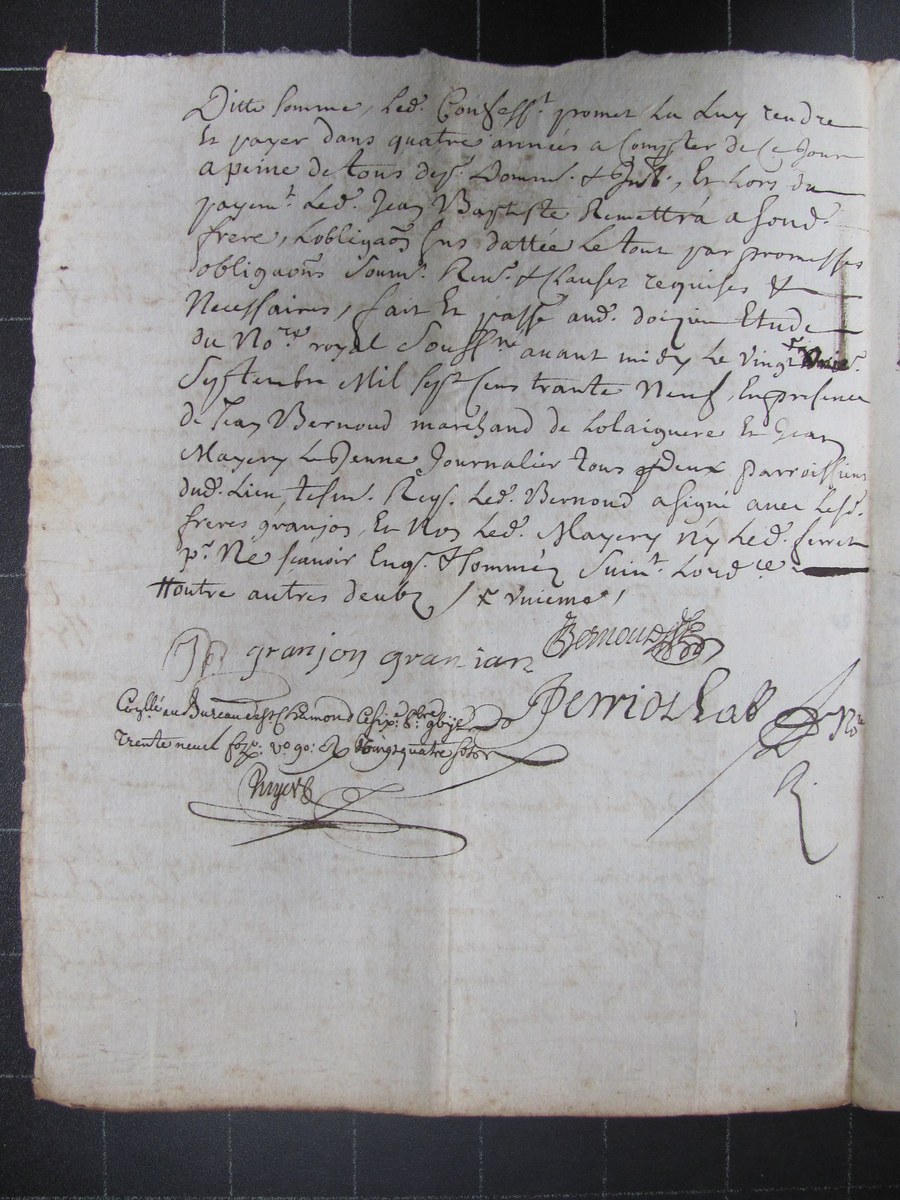 Ditte somme, led. Confesst. promet La Luy rendre
Et payer dans quatre années a Compter de Ce Jour
a peine de tous desp. Domm. & Int., Et Lors du
payemt. Led. Jean Baptiste Remettrá a sond.
frere, Lobligaõn sus dattée Le tout par promesses
obligaõns soum. Ren. & Clauses requises &
Necessaires, fait Et passé aud. Etude
du Nore. royal Soussne. avant midy Le vingt
Septembre Mil Sept Cens trante Neuf, En presence
de Jean Bernoud marchand de Et Jean
Mayery Le Jeune Journalier tous Deux parroissiens
dud. Lieu, tesm. Req. Led. Bernoud a signé avec Lesd.
freres granjon, Et Non Led. Mayery ny Led.
pr. Ne scavoir Enqs. & sommés Suivt. Lordce.
outre autres deub / x vnieme /
granjon granian Bernoud
Perriolat Nre
Conllé au Bureau de St Chamond Ce 8bre
Trente neuf fo. vo. 90: R vingt quatre sols
R.